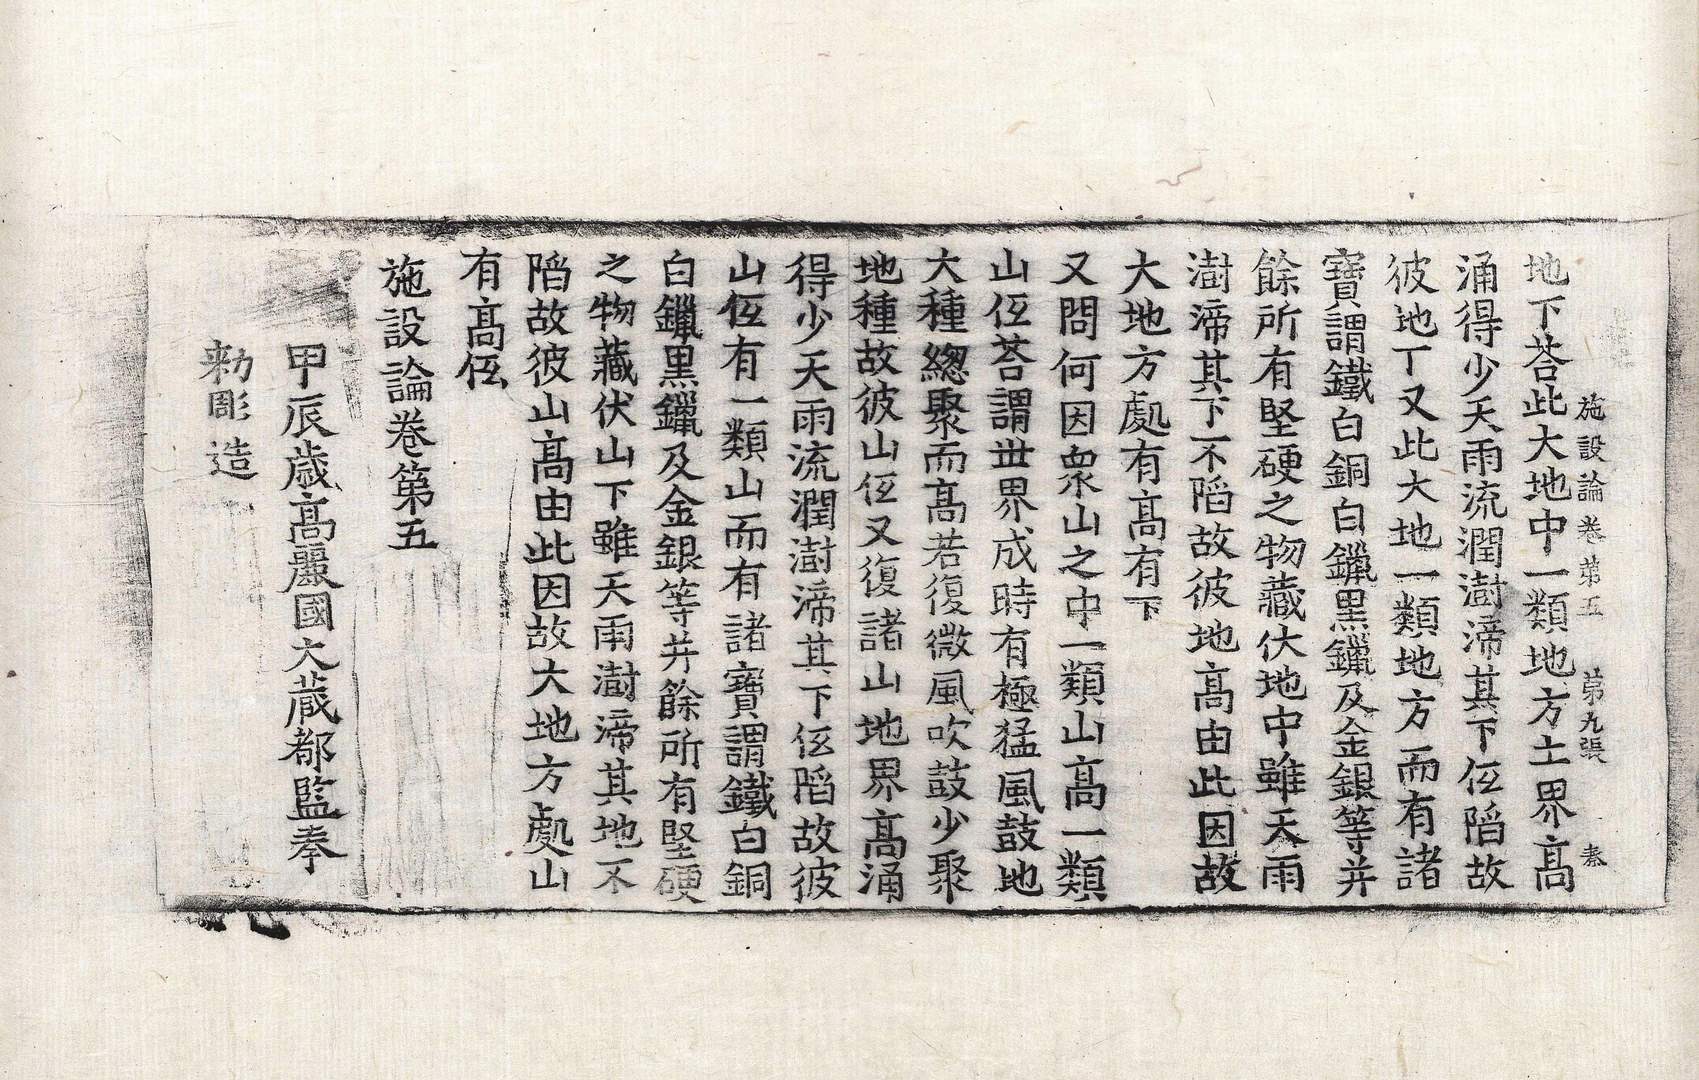 施設論卷第五　第九張　秦
地下荅此大地中一類地方土界高
涌得少天雨流潤澍渧其下仾陷故
彼地丅又此大地一類地方而有諸
寶謂鐵白銅白鑞黑鑞及金銀等并
餘所有堅硬之物藏伏地中雖天雨
澍渧其下不陷故彼地高由此因故
大地方處有高有下
又問何因衆山之中一類山高一類
山仾荅謂世界成時有極猛風鼓地
大種緫聚而高若復微風吹鼓少聚
地種故彼山仾又復諸山地界高涌
得少天雨流潤澍渧其下仾陷故彼
山仾有一類山而有諸寶謂鐵白銅
白鑞黑鑞及金銀等并餘所有堅硬
之物藏伏山下雖天雨澍渧其地不
陷故彼山高由此因故大地方處山
有高仾
施設論卷第五
甲辰歳高麗國大蔵都監奉
勑彫造